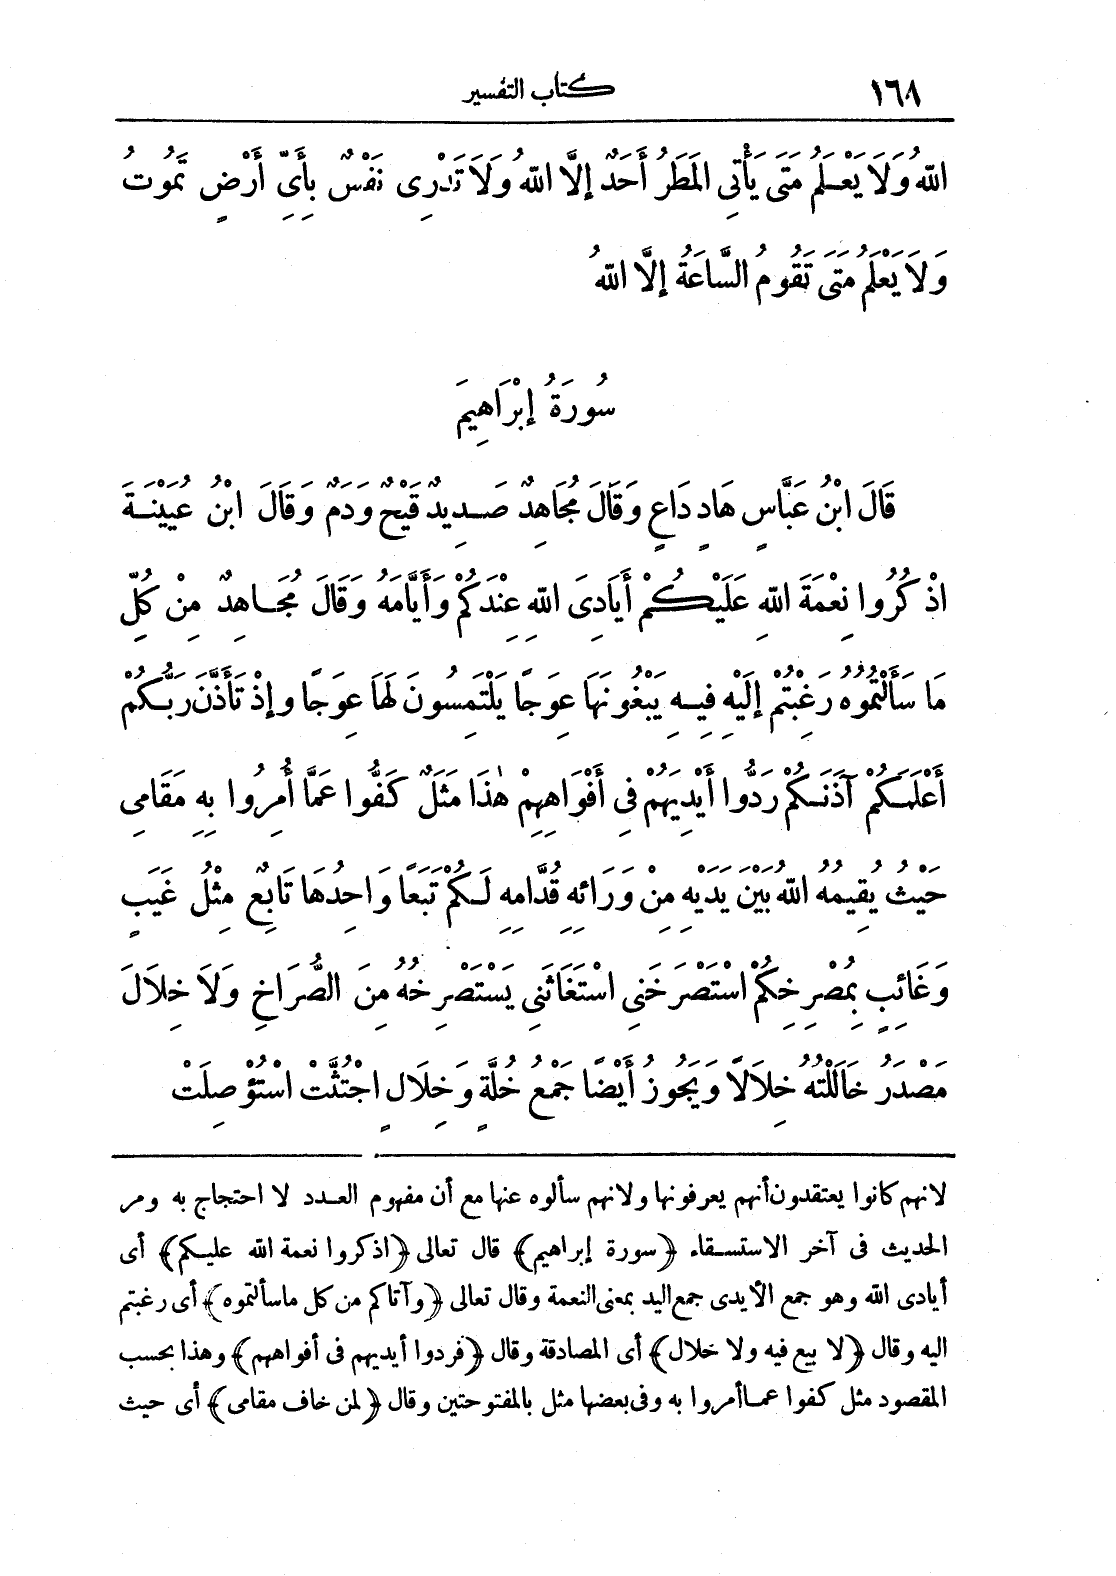 ١٦٨
كتاب التفسير
اللهُ وَلَا يَعْلَمُ مَتَى يَأْتِي المَطَرُ أَحَدٌ إِلَّا اللهُ وَلَا تَدْرِى نَفْسٌ بِأَىِّ أَرْضٍ تَمُوتُ
وَلَا يَعْلَمُ مَتَى تَقُومُ السَّاعَةُ إِلَّا اللهُ
سُورَةُ إِبْرَاهِيمَ
قَالَ ابْنُ عَبَّاسٍ هَادٍ دَاعٍ وَقَالَ مُجَاهِدٌ صَدِيدٌ قَيْحٌ وَدَمٌ وَقَالَ ابْنُ عُيَيْنَةَ
اذْكُرُوا نِعْمَةَ اللهِ عَلَيْكُمْ أَيَادِىَ اللهِ عِنْدَكُمْ وَأَيَّامَهُ وَقَالَ مُجَاهِدٌ مِنْ كُلِّ
مَا سَأَلْتُمُوهُ رَغِبْتُمْ إِلَيْهِ فِيهِ يَبْغُونَهَا عِوَجًا يَلْتَمِسُونَ لَهَا عِوَجًا وَإِذْ تَأَذَّنَ رَبُّكُمْ
أَعْلَمَكُمْ آذَنَكُمْ رَدُّوا أَيْدِيَهُمْ فِى أَفْوَاهِهِمْ هٰذَا مَثَلٌ كَفُّوا عَمَّا أُمِرُوا بِهِ مَقَامِى
حَيْثُ يُقِيمُهُ اللهُ بَيْنَ يَدَيْهِ مِنْ وَرَائِهِ قُدَّامِهِ لَكُمْ تَبَعًا وَاحِدُهَا تَابِعٌ مِثْلُ غَيَبٍ
وَغَائِبٍ بِمُصْرِخِكُمْ اسْتَصْرَخَنِى اسْتَغَاثَنِى يَسْتَصْرِخُهُ مِنَ الصُّرَاخِ وَلَا خِلَالَ
مَصْدَرُ خَالَلْتُهُ خِلَالًا وَيَجُوزُ أَيْضًا جَمْعُ خُلَّةٍ وَخِلَالٍ اجْتُثَّتْ اسْتُؤْصِلَتْ
لانهم كانوا يعتقدون أنهم يعرفونها ولانهم سألوه عنها مع أن مفهوم العدد لا احتجاج به ومر
الحديث فى آخر الاستسقاء ﴿سورة إبراهيم﴾ قال تعالى ﴿اذكروا نعمة الله عليكم﴾ أى
أيادى الله وهو جمع الأيدى جمع اليد بمعنى النعمة وقال تعالى ﴿وآتاكم من كل ماسألتموه﴾ أى رغبتم
اليه وقال ﴿لا بيع فيه ولا خلال﴾ أى المصادقة وقال ﴿فردوا أيديهم فى أفواههم﴾ وهذا بحسب
المقصود مثل كفوا عما أمروا به وفى بعضها مثل بالمفتوحتين وقال ﴿لمن خاف مقامى﴾ أى حيث